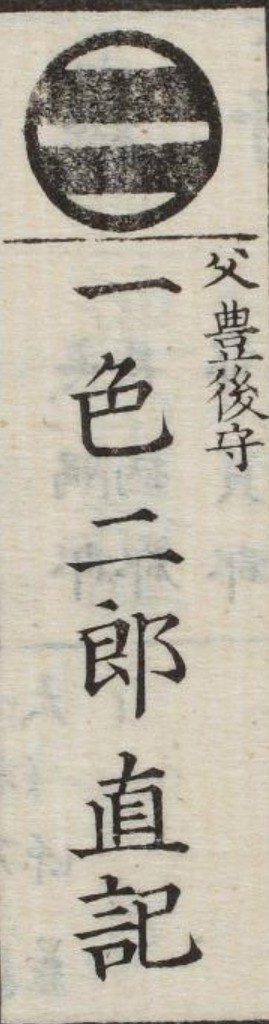 父豊後守
一色二郎直記